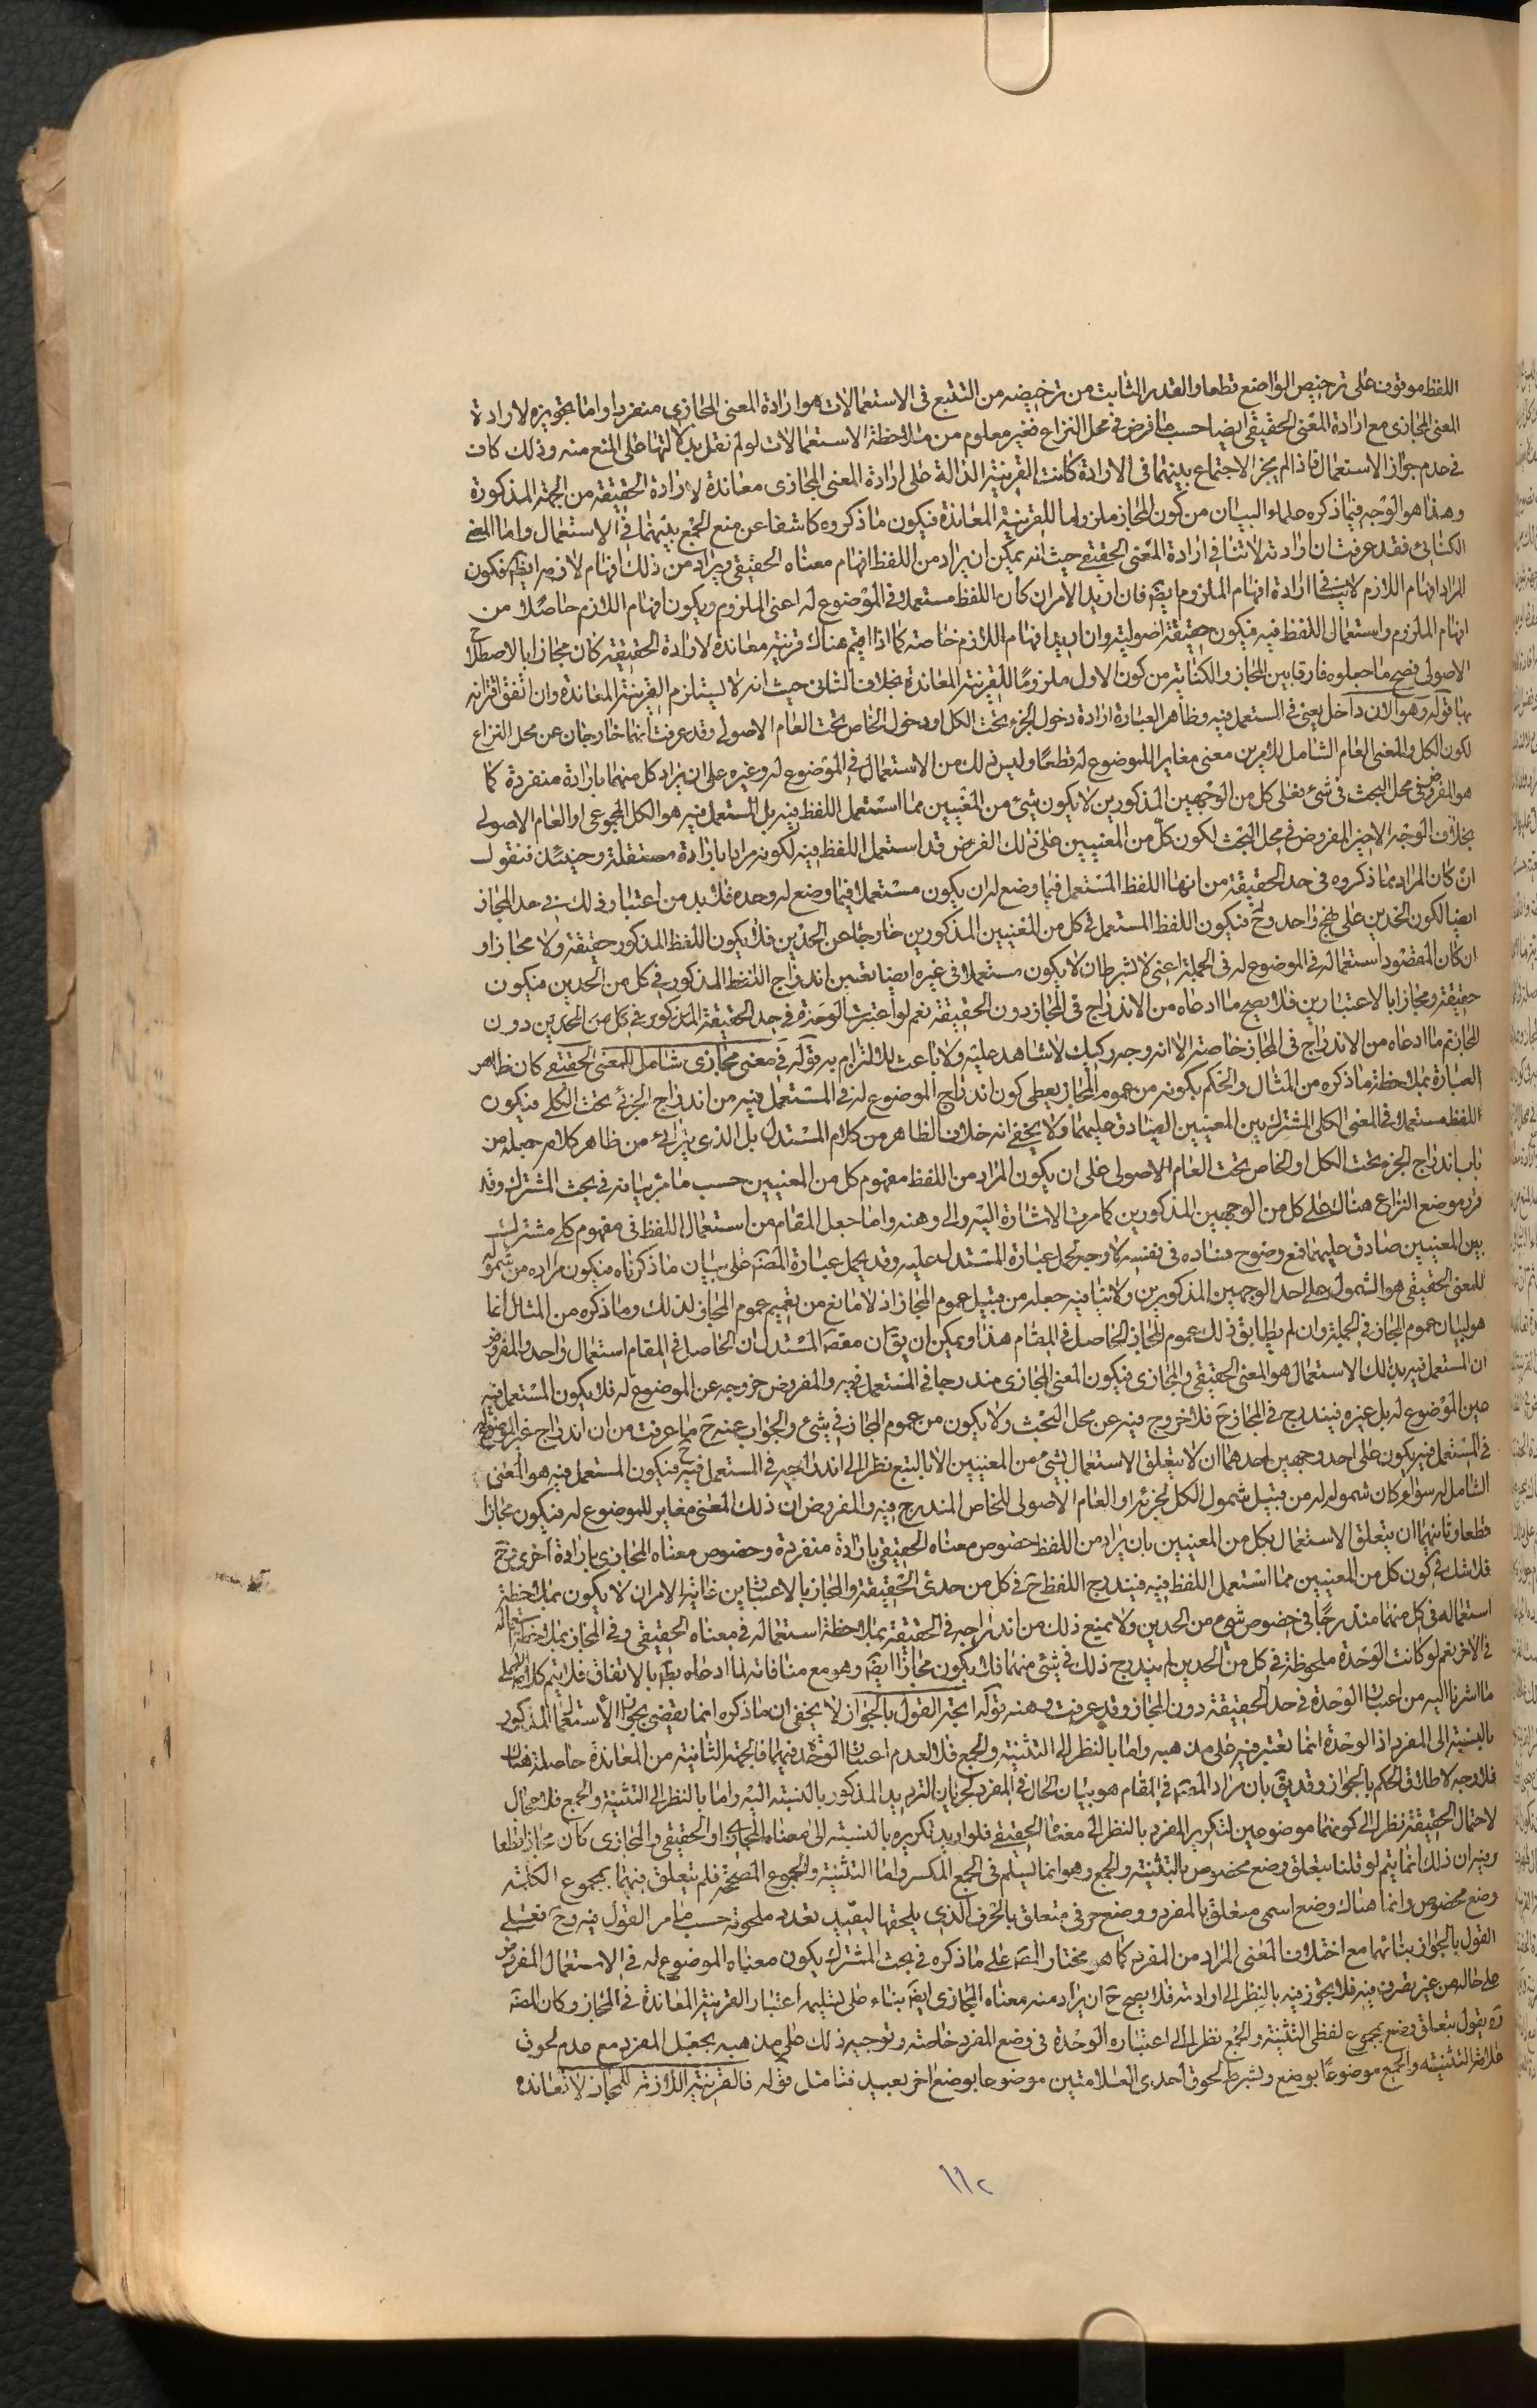 اللفظ موقوف على ترخيص الواضع قطعا والقدر الثابت من ترخيصه من التتبع في الاستعمالات هو ارادة المعنى المجازي منفردا واما تجويزه لارادة
المعنى المجازي مع ارادة المعنى الحقيقي ايضا حسب ما فرض في محل النزاع فغير معلوم من ملاحظة الاستعمالات لو لم نقل بدلالتها على المنع منه وذلك كاف
في عدم جواز الاستعمال فاذا لم يجز الاجتماع بينهما في الارادة كانت القرينة الدالة على ارادة المعنى المجازي معاندة لارادة الحقيقة من الجهة المذكورة
وهذا هو الوجه فيما ذكره علماء البيان من كون المجاز ملزوما للقرينة المعاندة فيكون ما ذكروه كاشفا عن منع الجمع بينهما في الاستعمال واما المعنى
الكنائي فقد عرفت ان ارادته لا تنافي ارادة المعنى الحقيقي حيث انه يمكن ان يراد من اللفظ افهام معناه الحقيقي ويراد من ذلك افهام لازمه ايضا فكون
المراد افهام اللازم لا ينافي ارادة افهام الملزوم ايضا فان اريد الامران كان اللفظ مستعملا في الموضوع له اعنى الملزوم ويكون افهام اللازم حاصلا من
افهام الملزوم واستعمال اللفظ فيه فيكون حقيقة اصولية وان اريد افهام اللازم خاصة كما اذا اقيم هناك قرينة معاندة لارادة الحقيقة كان مجازا بالاصطلاح
الاصولي فصح ما جعلوه فارقا بين المجاز والكناية من كون الاول ملزومًا للقرينة المعاندة بخلاف الثاني حيث انه لا يستلزم القرينة المعاندة وان اتفق اقترانه
بها قوله وهو الان داخل يعنى في المستعمل فيه وظاهر العبارة ارادة دخول الجزء تحت الكل او دخول الخاص تحت العام الاصولي وقد عرفت انهما خارجان عن محل النزاع
لكون الكل والمعنى العام الشامل للامرين معنى مغايرا للموضوع له قطعًا وليس ذلك من الاستعمال في الموضوع له وغيره على ان يراد كل منهما بارادة منفردة كما
هو المفروض في محل البحث في شئ فعلى كل من الوجهين المذكورين لا يكون شئ من المعنيين مما استعمل اللفظ فيه بل المستعمل فيه هو الكل المجموعي او العام الاصولي
بخلاف الوجه الاخير المفروض في محل البحث لكون كل من المعنيين على ذلك الفرض قد استعمل اللفظ فيه لكونه مرادا بارادة مستقلة وحينئذ فنقول
ان كان المراد بما ذكروه في حد الحقيقة من انها اللفظ المستعمل فيما وضع له ان يكون مستعملا فيما وضع له وحده فلا بد من اعتبار ذلك في حد المجاز
ايضا لكون الحدين على نهج واحد وح فيكون اللفظ المستعمل في كل من المعنيين المذكورين خارجا عن الحدين فلا يكون اللفظ المذكور حقيقة ولا مجازا و
ان كان المقصود استعماله في الموضوع له في الجملة اعني لا بشرط ان لا يكون مستعملا في غيره ايضا تعين اندراج اللفظ المذكور في كل من الحدين فيكون
حقيقة ومجازا بالاعتبارين فلا يصح ما ادعاه من الاندراج في المجاز دون الحقيقة نعم لو اعتبرت الوحدة في حد الحقيقة المذكور في كل من الحدين دون
المجاز تم ما ادعاه من الاندراج في المجاز خاصة الا انه وجه ركيك لا شاهد عليه ولا باعث للالتزام به قوله في معنى مجازى شامل للمعنى الحقيقي كان ظاهر
العبارة بملاحظة ما ذكره من المثال والحكم بكونه من عموم المجاز يعطى كون اندراج الموضوع له في المستعمل فيه من اندراج الجزئي تحت الكلي فيكون
اللفظ مستعملا في المعنى الكلي المشترك بين المعنيين الصادق عليهما ولا يخفى انه خلاف الظاهر من كلام المستدل بل الذي يترائى من ظاهر كلامه جعله من
باب اندراج الجزء تحت الكل او الخاص تحت العام الاصولي على ان يكون المراد من اللفظ مفهوم كل من المعنيين حسب ما مر بيانه في بحث المشترك وقد
قرر موضع النزاع هناك على كل من الوجهين المذكورين كما مرت الاشارة اليه والى وهنه واما جعل المقام من استعمال اللفظ في مفهوم كلى مشترك
بين المعنيين صادق عليهما فمع وضوح فساده في نفسه لا وجه لحمل عبارة المستدل عليه وقد يحمل عبارة المصنف على بيان ما ذكرناه فيكون مراده من شموله
للمعنى الحقيقي هو الشمول على احد الوجهين المذكورين ولا ينافيه جعله من قبيل عموم المجاز اذ لا مانع من تعميم عموم المجاز لذلك وما ذكره من المثال انما
هو لبيان عموم المجاز في الجملة وان لم يطابق ذلك عموم المجاز الحاصل في المقام هذا ويمكن ان يق ان مقصد المستدل ان الحاصل في المقام استعمال واحد والمفروض
ان المستعمل فيه بذلك الاستعمال هو المعنى الحقيقي والمجازى فيكون المعنى المجازى مندرجا في المستعمل فيه والمفروض خروجه عن الموضوع له فلا يكون المستعمل فيه
عين الموضوع له بل غيره فيندرج في المجاز ح فلا خروج فيه عن محل البحث ولا يكون من عموم المجاز في شئ والجواب عنه ح ما عرفت من ان اندراج غير الموضوع له
في المستعمل فيه يكون على احد وجهين احدهما ان لا يتعلق الاستعمال بشئ من المعنيين الا بالتبع نظرا الى اندراجه في المستعمل فيه فيكون المستعمل فيه هو المعنى
الشامل له سواء كان شموله له من قبيل شمول الكل لجزئه او العام الاصولي للخاص المندرج فيه والمفروض ان ذلك المعنى مغاير للموضوع له فيكون مجازا
قطعا وثانيهما ان يتعلق الاستعمال بكل من المعنيين بان يراد من اللفظ خصوص معناه الحقيقي بارادة منفردة وخصوص معناه المجازى بارادة اخرى فح
فلا شك في كون كل من المعنيين مما استعمل اللفظ فيه فيندرج اللفظ ح في كل من حدى الحقيقة والمجاز بالاعتبارين غاية الامر ان لا يكون بملاحظة
استعماله في كل منهما مندرجًا في خصوص شئ من الحدين ولا يمنع ذلك من اندراجه في الحقيقة بملاحظة استعماله في معناه الحقيقي وفي المجاز بملاحظة استعماله
في الاخر نعم لو كانت الوحدة ملحوظة في كل من الحدين لم يندرج ذلك في شئ منهما فلا يكون مجازا ايضا وهو مع منافاته لما ادعاه بط بالاتفاق فلا يتم كلامه الا على
ما اشرنا اليه من اعتبار الوحدة في حد الحقيقة دون المجاز وقد عرفت وهنه قوله اتجه القول بالجواز لا يخفى ان ما ذكره انما يقضى بجواز الاستعمال المذكور
بالنسبة الى المفرد اذ الوحدة انما تعتبر فيه على مذهبه واما بالنظر الى التثنية والجمع فلا لعدم اعتبار الوحدة فيهما فالجهة الثانية من المعاندة حاصلة هناك
فلا وجه لاطلاق الحكم بالجواز وقد يق بان مراد المصنف في المقام هو بيان الحال في المفرد لجريان الترديد المذكور بالنسبة اليه واما بالنظر الى التثنية والجمع فلا مجال
لاحتمال الحقيقة نظرا الى كونهما موضوعين لتكرير المفرد بالنظر الى معناه الحقيقي فلو اريد تكريره بالنسبة الى معناه المجازى او الحقيقي والمجازى كان مجازا قطعا
وفيه ان ذلك انما يتم لو قلنا بتعلق وضع مخصوص بالتثنية والجمع وهو انما يسلم في الجمع المكسر واما التثنية والجموع المصححة فلم يتعلق فيهما بمجموع الكلمة
وضع مخصوص وانما هناك وضع اسمى متعلق بالمفرد ووضع حرفى متعلق بالحرف الذي يلحقها ليفيد تعدد ملحوقه حسب ما مر القول فيه وح فعلى
القول بالجواز بنائهما مع اختلاف المعنى المراد من المفرد كما هو مختار المصنف على ما ذكره في بحث المشترك يكون معناه الموضوع له في الاستعمال المفروض
على حاله من غير تصرف فيه فلا تجوز فيه بالنظر الى ارادته فلا يصح ح ان يراد منه معناه المجازى ايضا بناء على تسليمه اعتبار القرينة المعاندة في المجاز وكان المصنف
ره يقول بتعلق وضع بمجموع لفظى التثنية والجمع نظرا الى اعتباره الوحدة في وضع المفرد خاصة وتوجيه ذلك على مذهبه بجعل المفرد مع عدم لحوق
علامة التثنية والجمع موضوعًا بوضع وبشرط لحوق احدى العلامتين موضوعا بوضع اخر بعيد فتامل قوله فالقرينة اللازمة للمجاز لا تعانده
١١٢